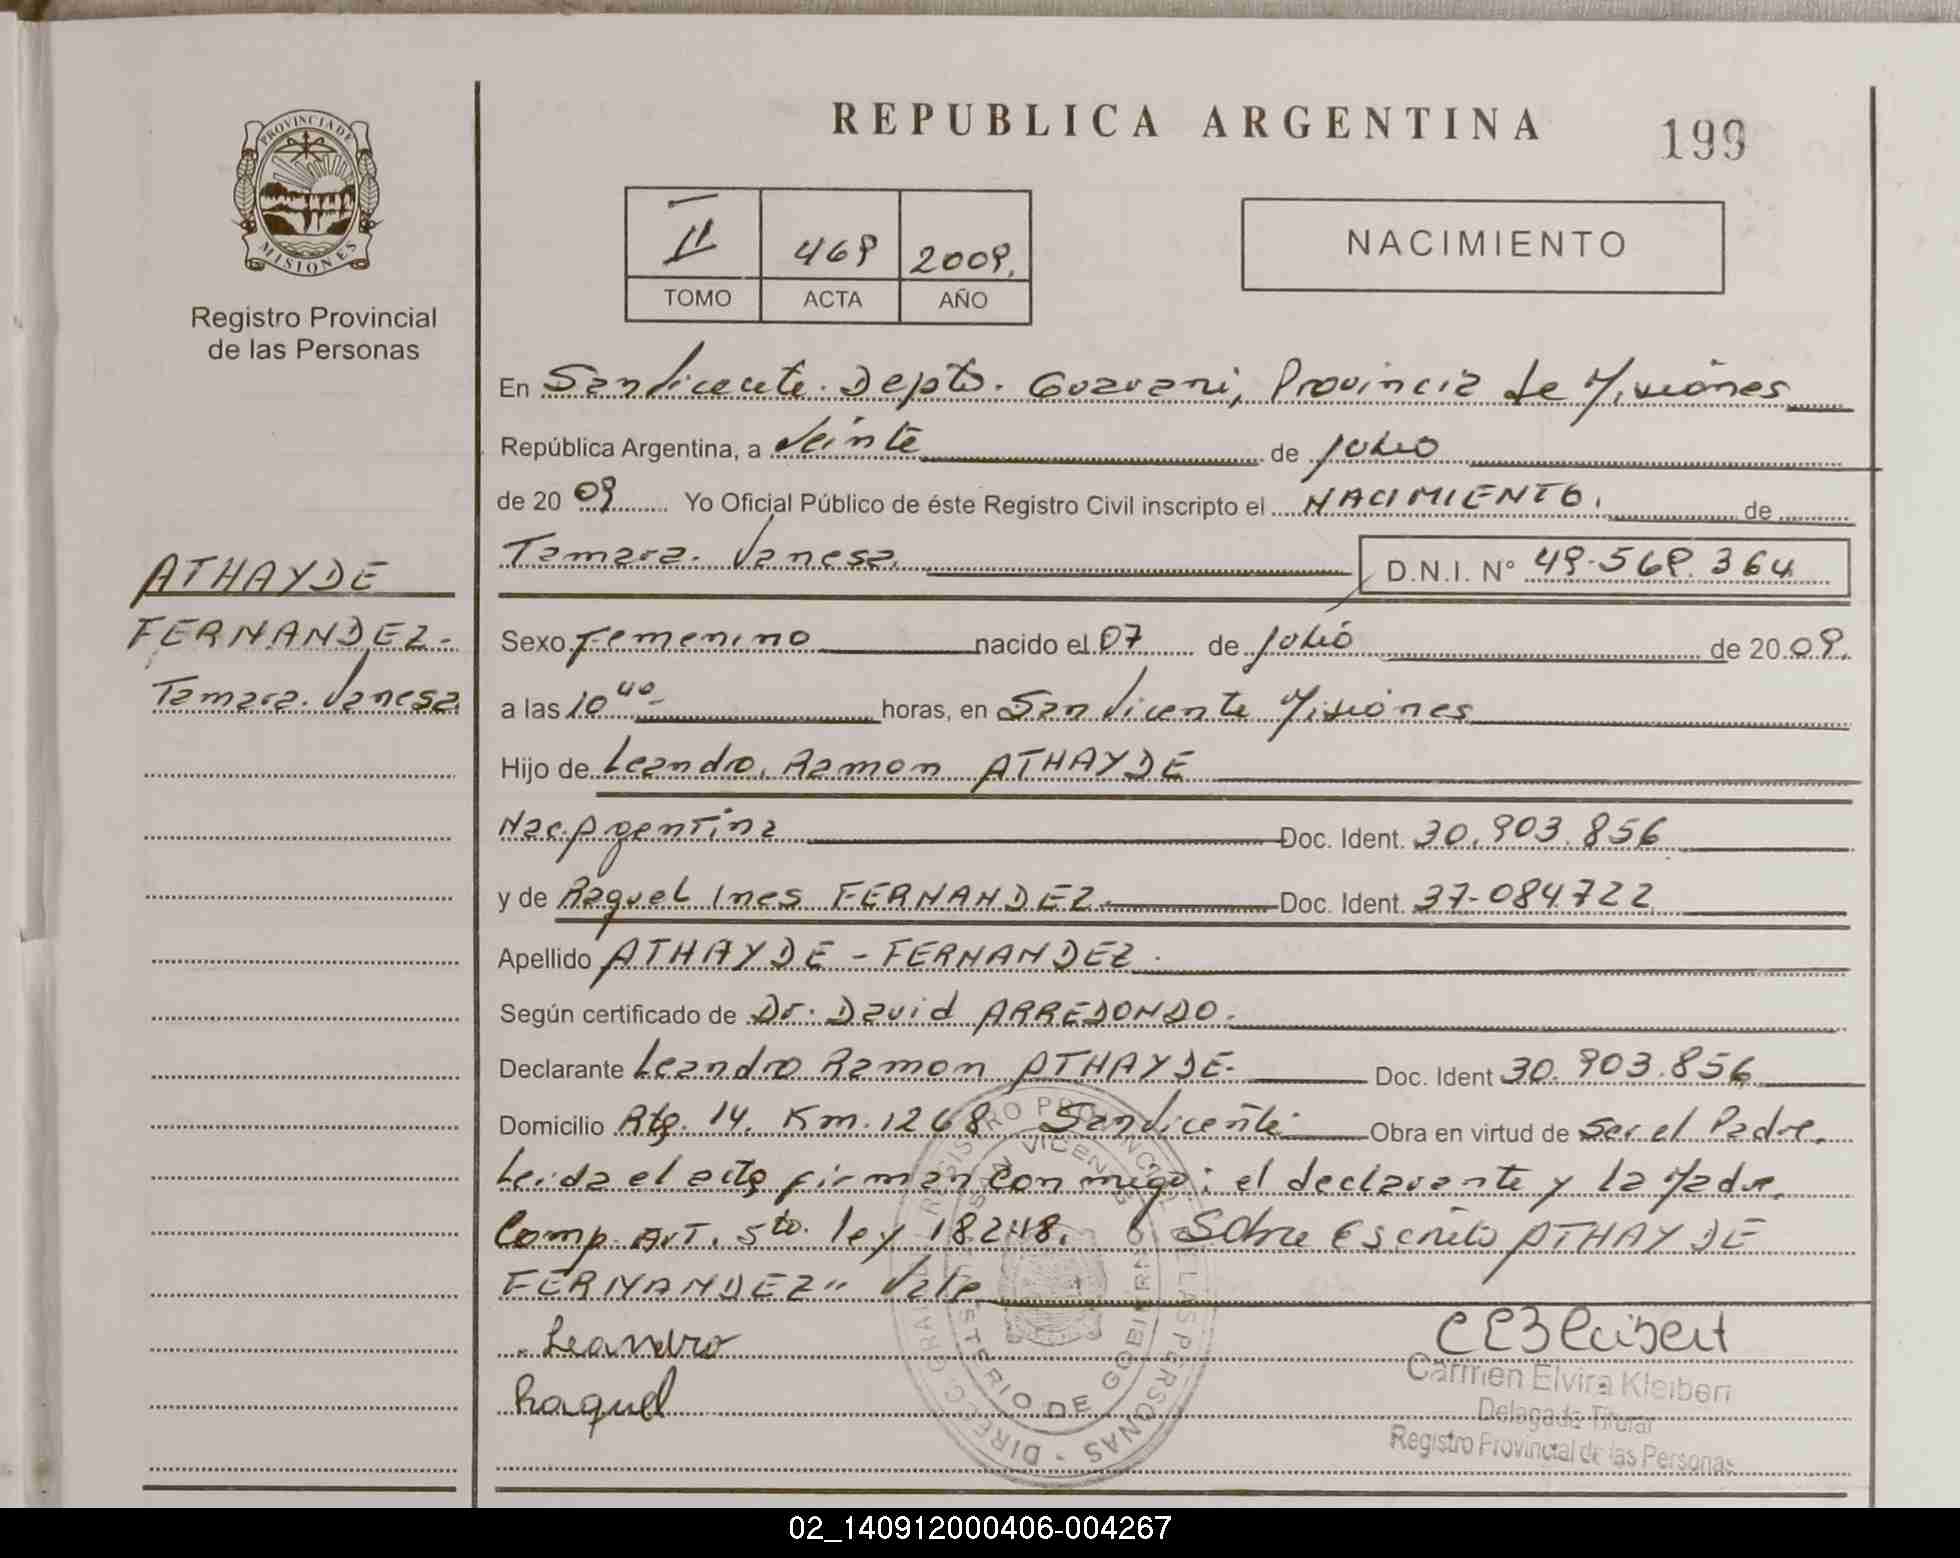 REPUBLICA ARGENTINA
199
PROVINCIA DE
MISIONES
Registro Provincial
de las Personas
II 469 2009.
TOMO ACTA AÑO
NACIMIENTO
En San Vicente. Depto. Guarani, Provincia de Misiones
República Argentina, a Veinte de Julio
de 20 09 Yo Oficial Público de éste Registro Civil inscripto el NACIMIENTO. de
Tamara. Vanesa. D.N.I. N° 49.569.364
ATHAYDE
FERNANDEZ-
Tamara. Vanesa
Sexo Femenino nacido el 07 de Julio de 20 09.
a las 10 40- horas, en San Vicente Misiones
Hijo de Leandro. Ramon ATHAYDE
Nac. Agentina Doc. Ident. 30.903.856
y de Raquel Ines FERNANDEZ- Doc. Ident. 37-084722
Apellido ATHAYDE - FERNANDEZ.
Según certificado de Dr. David ARREDONDO.
Declarante Leandro Ramon ATHAYDE- Doc. Ident 30.903.856
Domicilio Rta. 14. Km. 1268 San Vicente Obra en virtud de Ser el Padre.
Leida el acta firman conmigo: el declarante y la Madre.
Comp. Art. 5to. ley 18248. Sobre Escrito ATHAYDE
FERNANDEZ" Vale
Leandro
Raquel
CEKleibert
Carmen Elvira Kleibert
Delegada Titular
Registro Provincial de las Personas
DIRECC. GRAL. DEL REGISTRO PROVINCIAL DE LAS PERSONAS -
SAN VICENTE
MINISTERIO DE GOBIERNO
02_140912000406-004267